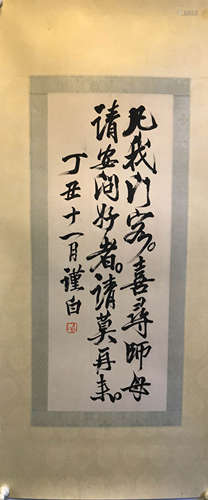 凡我门客。喜寻师母
请安问好者。请莫再来。
丁丑十一月谨白